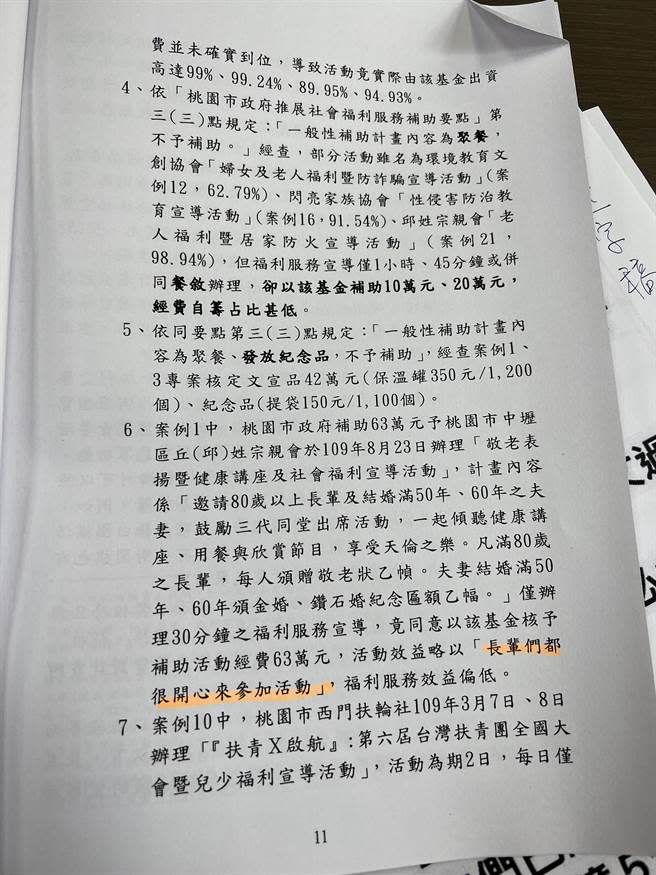 費並未確實到位，導致活動竟實際由該基金出資
高達99%、99.24%、89.95%、94.93%。
4、依「桃園市政府推展社會福利服務補助要點」第
三(三)點規定：「一般性補助計畫內容為聚餐，
不予補助。」經查，部分活動雖名為環境教育文
創協會「婦女及老人福利暨防詐騙宣導活動」(案
例12，62.79%)、閃亮家族協會「性侵害防治教
育宣導活動」(案例16，91.54%)、邱姓宗親會「老
人福利暨居家防火宣導活動」(案例21，
98.94%)，但福利服務宣導僅1小時、45分鐘或併
同餐敘辦理，卻以該基金補助10萬元、20萬元，
經費自籌占比甚低。
5、依同要點第三(三)點規定：「一般性補助計畫內
容為聚餐、發放紀念品，不予補助」，經查案例1、
3專案核定文宣品42萬元(保溫罐350元/1,200
個)、紀念品(提袋150元/1,100個)。
6、案例1中，桃園市政府補助63萬元予桃園市中壢
區丘(邱)姓宗親會於109年8月23日辦理「敬老表
揚暨健康講座及社會福利宣導活動」，計畫內容
係「邀請80歲以上長輩及結婚滿50年、60年之夫
妻，鼓勵三代同堂出席活動，一起傾聽健康講
座、用餐與欣賞節目，享受天倫之樂。凡滿80歲
之長輩，每人頒贈敬老狀乙幀。夫妻結婚滿50
年、60年頒金婚、鑽石婚紀念匾額乙幅。」僅辦
理30分鐘之福利服務宣導，竟同意以該基金核予
補助活動經費63萬元，活動效益略以「長輩們都
很開心來參加活動」，福利服務效益偏低。
7、案例10中，桃園市西門扶輪社109年3月7日、8日
辦理「『扶青X啟航』：第六屆台灣扶青團全國大
會暨兒少福利宣導活動」，活動為期2日，每日僅
11